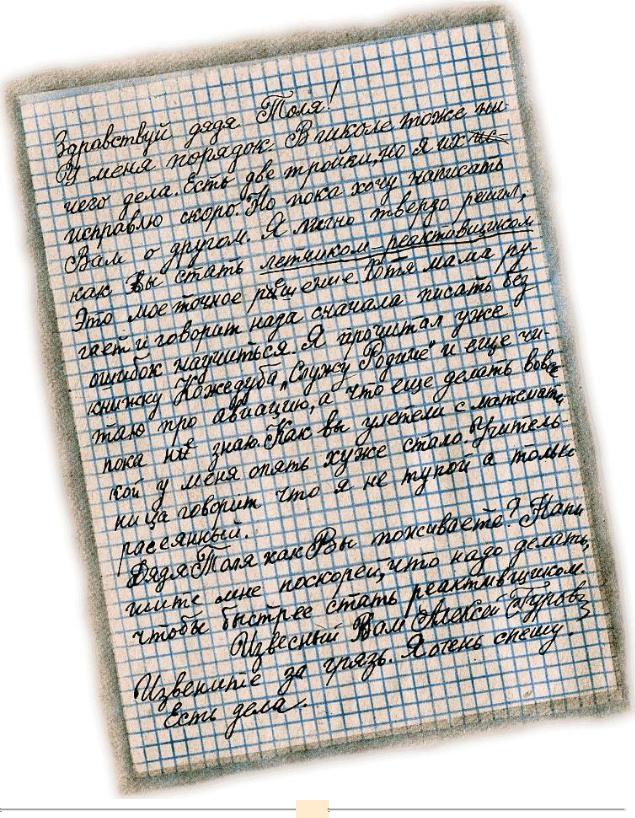 Здравствуй дядя Толя!
У меня порядок. В школе тоже ни-
чего дела. Есть две тройки, но я их ис-
исправлю скоро. Но пока хочу написать
Вам о другом. Я лично твердо решил,
как Вы стать летчиком-реактовщиком
Это мое точное решение. Хотя мама ру-
гает и говорит нада сначала писать без
ошибок научиться. Я прочитал уже
книжку Кожедуба „Служу Родине" и еще чи-
таю про авиацию, а что еще делать вобще
пока не знаю. Как вы улетели с математи-
кой у меня опять хуже стало. Учитель-
ница говорит что я не тупой а только
рассеянный.
Дядя Толя как Вы поживаете? Напи
шите мне поскорей, что надо делать,
чтобы быстрее стать реактивщиком.
Извесный Вам Алексей
Извените за грязь. Я очень спешу.
Есть дела.